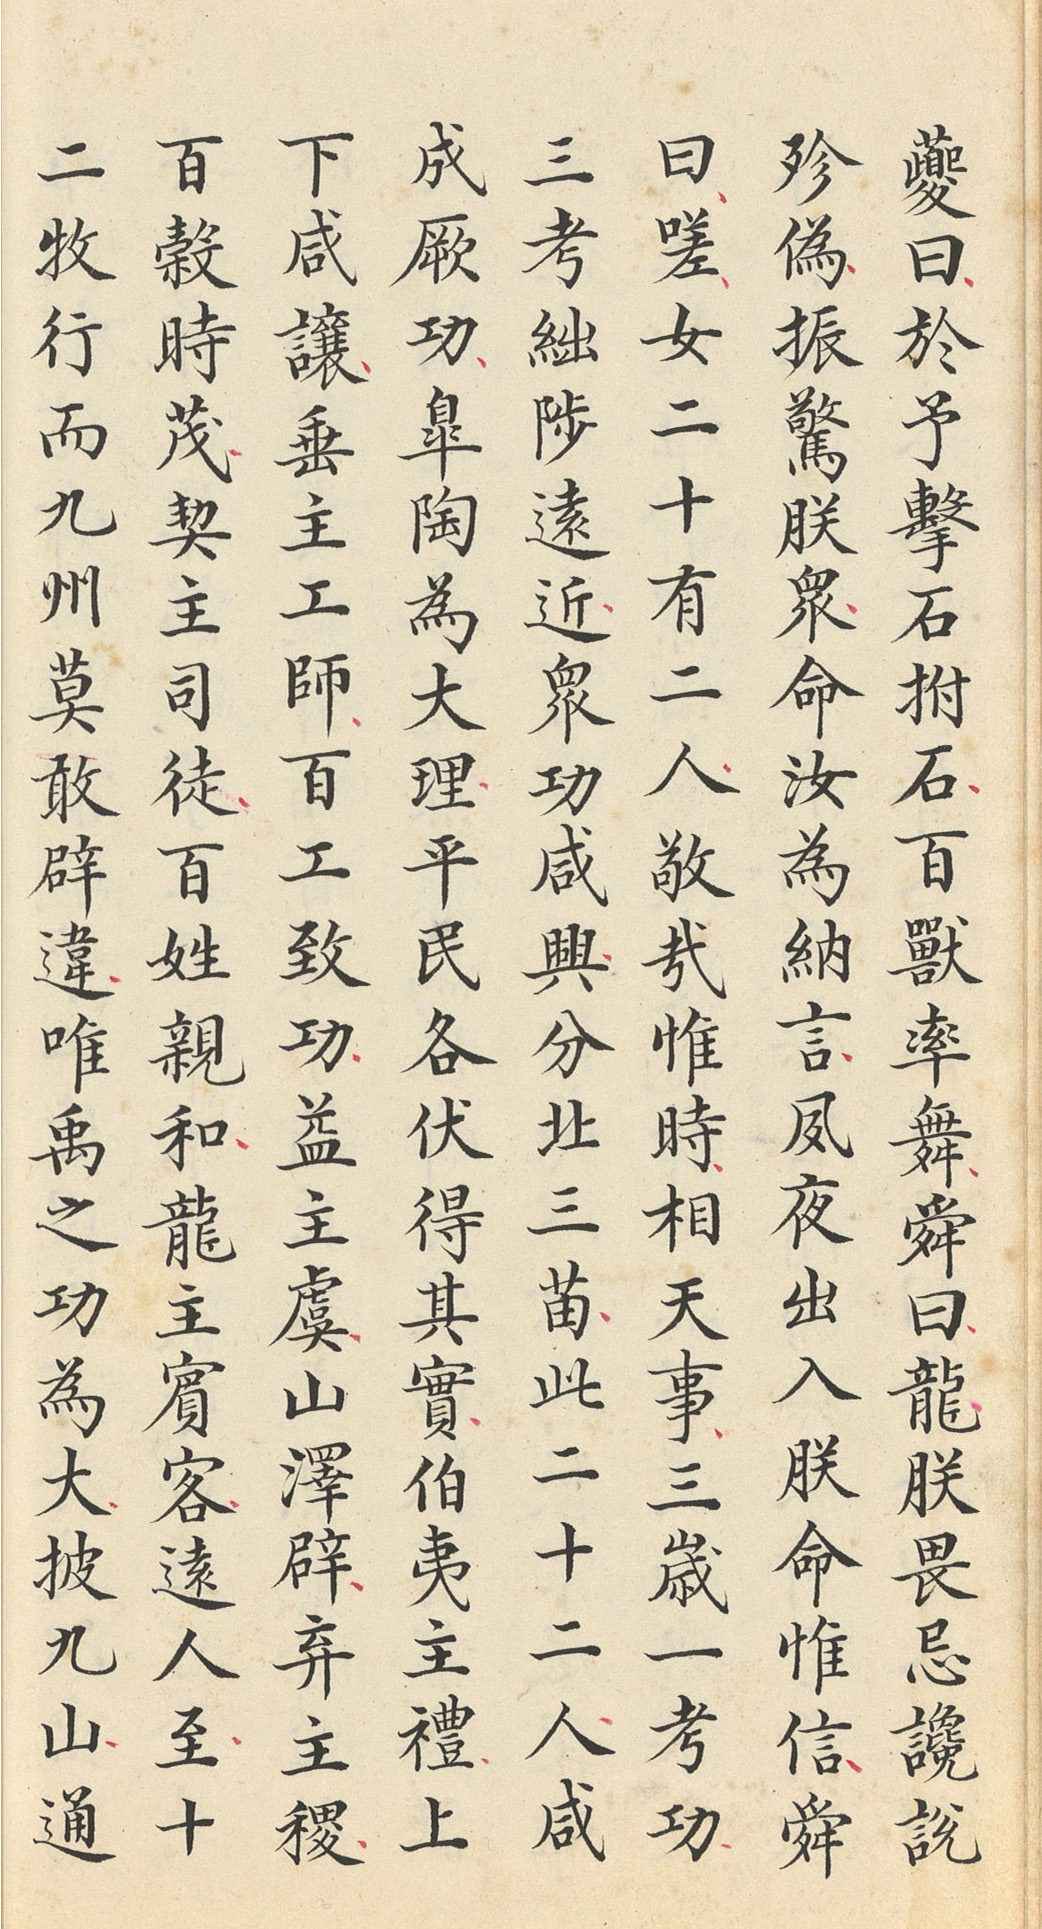 夔曰、於予擊石拊石、百獸率舞、舜曰、龍、朕畏忌讒說
殄偽、振驚朕衆、命汝為納言、夙夜出入朕命惟信、舜
曰、嗟、女二十有二人、敬哉惟時、相天事、三歲一考功、
三考絀陟遠近、衆功咸興、分北三苗、此二十二人、咸
成厥功、皐陶為大理、平民各伏得其實、伯夷主禮、上
下咸讓、垂主工師、百工致功、益主虞、山澤辟、弃主稷、
百穀時茂、契主司徒、百姓親和、龍主賓客、遠人至、十
二牧行而九州莫敢辟違、唯禹之功為大、披九山、通